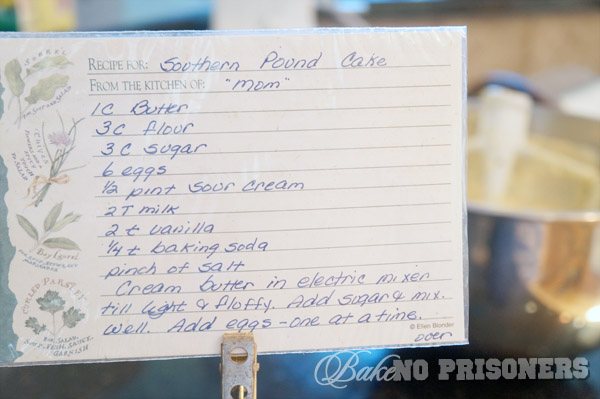 RECIPE FOR: Southern Pound Cake
FROM THE KITCHEN OF: "Mom"
1C Butter
3C flour
3C sugar
6 eggs
½ pint sour cream
2T milk
2 t vanilla
¼ t baking soda
pinch of salt
Cream butter in electric mixer
till light & floffy. Add sugar & mix.
well. Add eggs - one at a time.
© Ellen Blonder
over
SORREL
CHIVES
CURLED PARSLEY
GARNISH
Bake NO PRISONERS